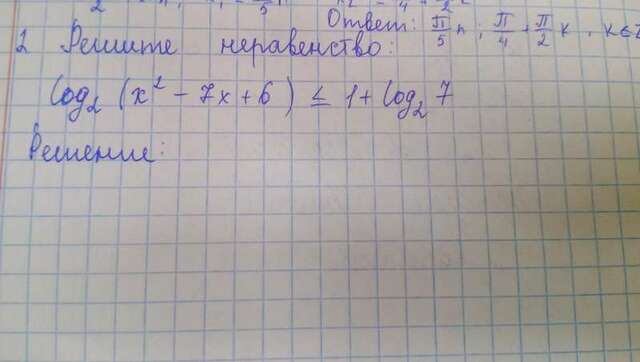 Ответ: π/5 n; π/4 + π/2 k, k∈Z
2 Решите неравенство:
log₂ (x² - 7x + 6) ≤ 1 + log₂ 7
Решение: